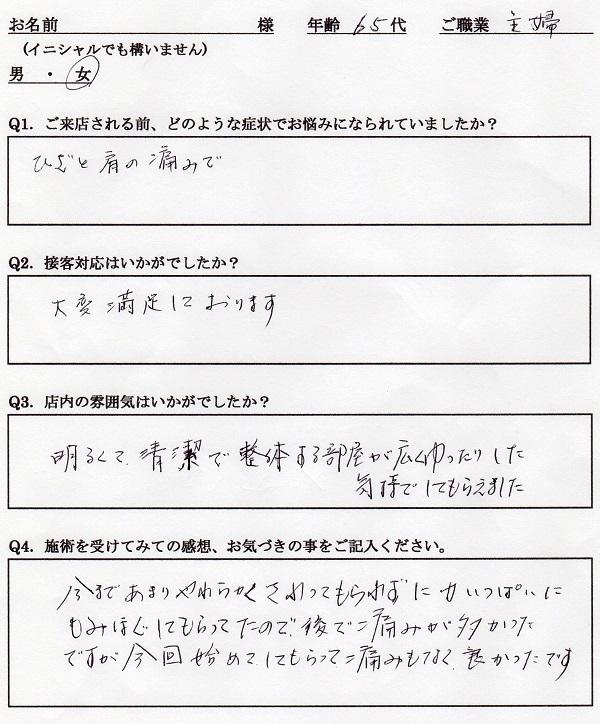 お名前 様 年齢 65代 ご職業 主婦
(イニシャルでも構いません)
男 ・ 女
Q1. ご来店される前、どのような症状でお悩みになられていましたか？
ひざと肩の痛みで
Q2. 接客対応はいかがでしたか？
大変満足しております
Q3. 店内の雰囲気はいかがでしたか？
明るくて、清潔で整体する部屋が広くゆったりした
気持でしてもらえました
Q4. 施術を受けてみての感想、お気づきの事をご記入ください。
今まであまりやわらかくさわってもらわずに力いっぱいに
もみほぐしてもらってたので、後で痛みが多かった
ですが今回始めてしてもらって痛みもなく、良かったです